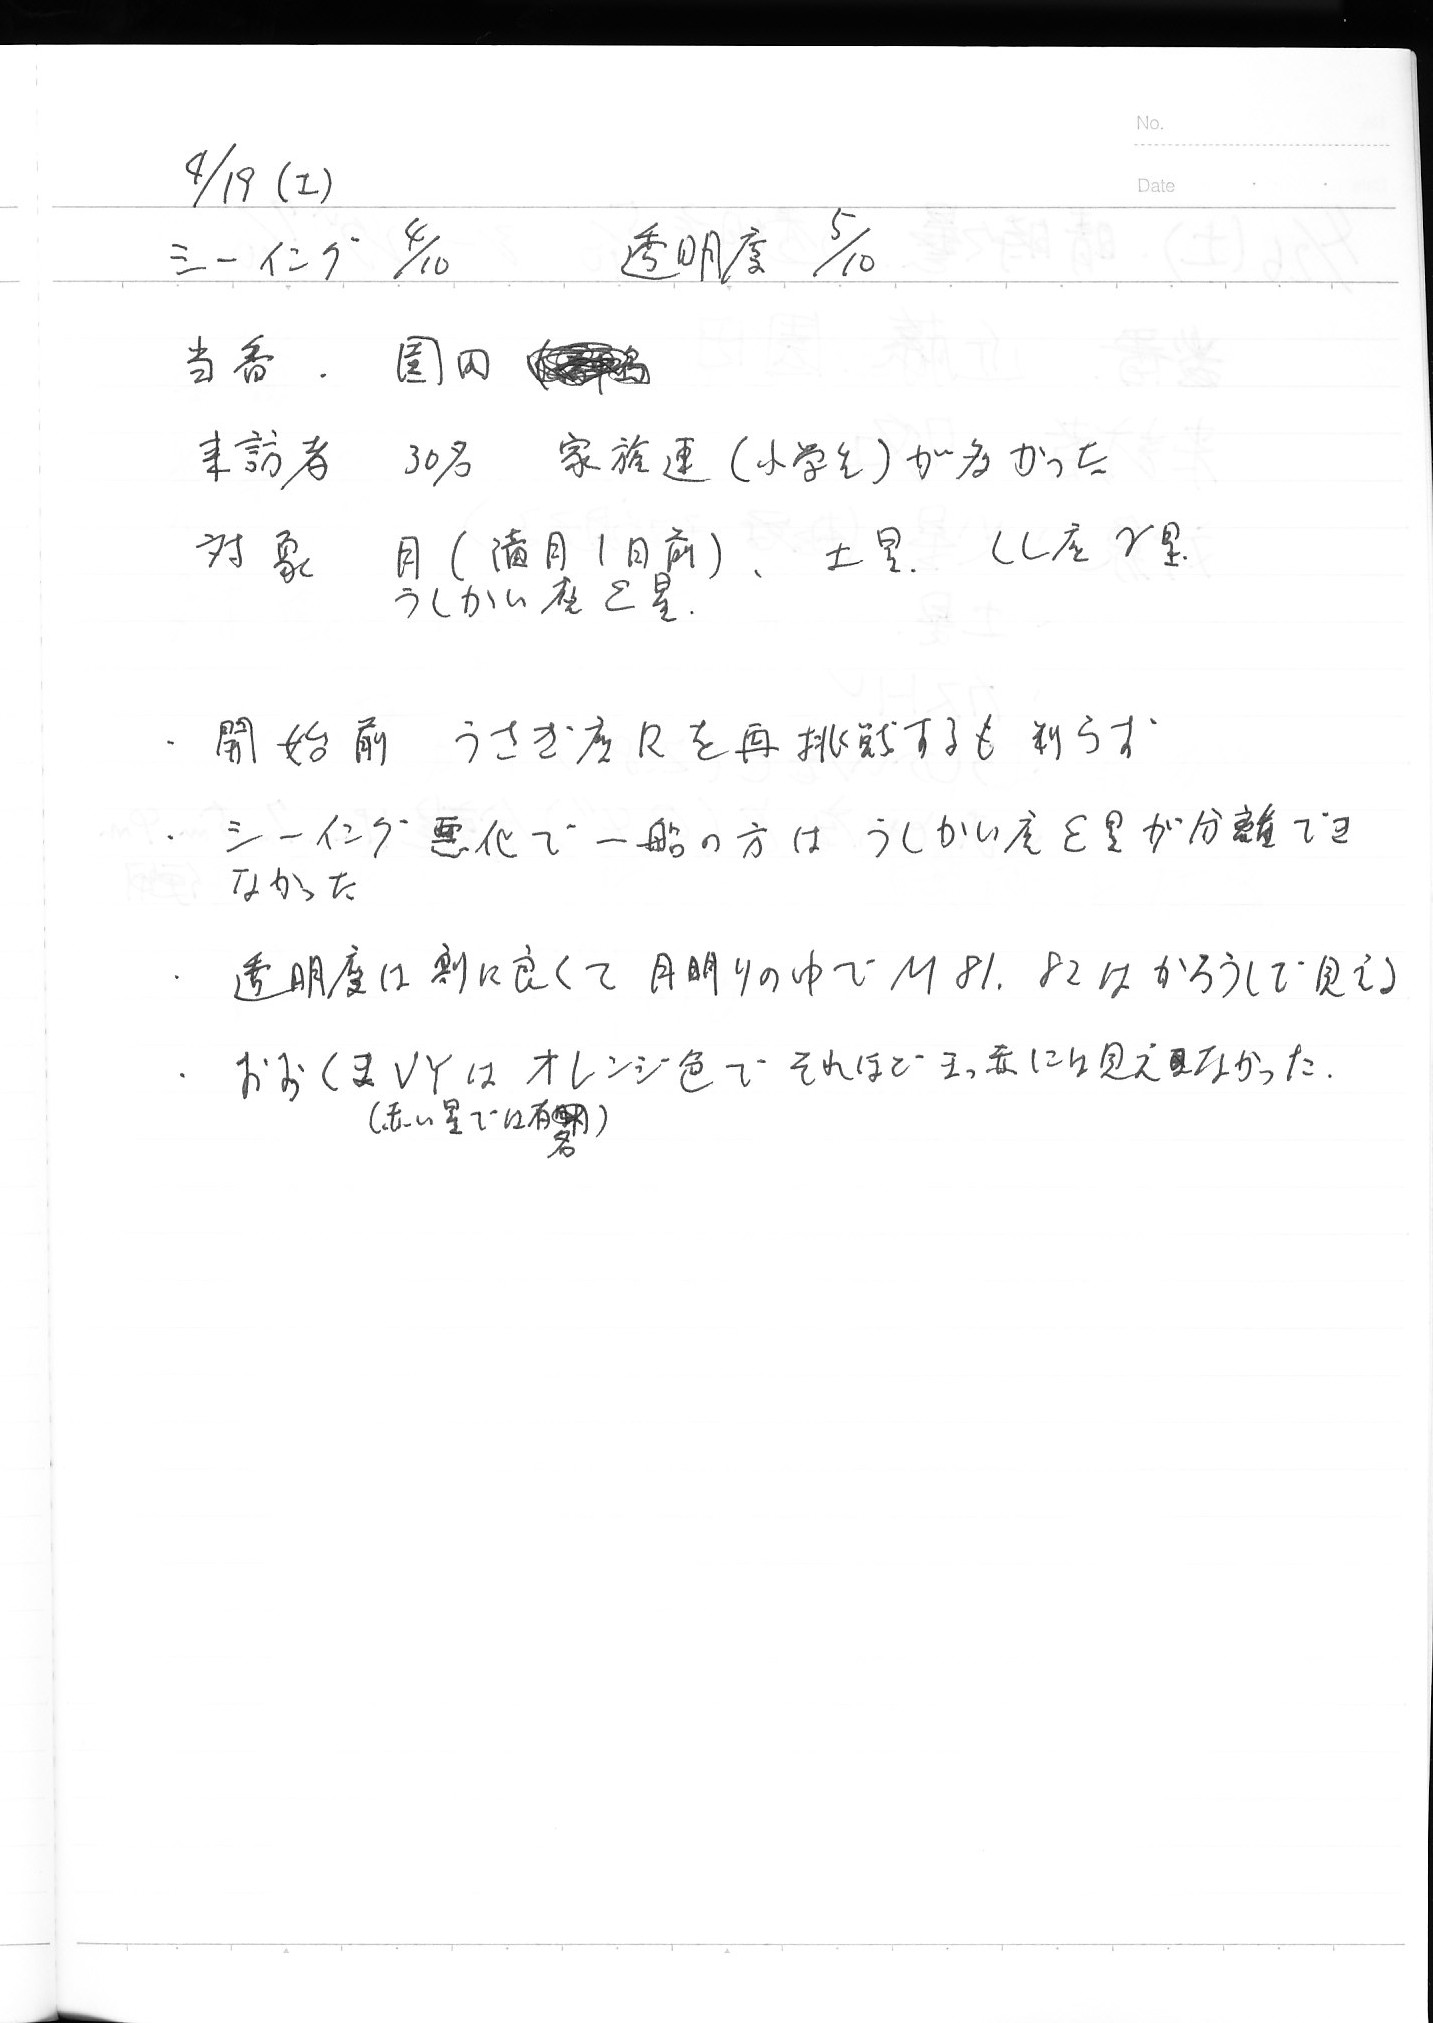 No.
Date
4/19(土)
シーイング 4/10 透明度 5/10
当番. 園内
来訪者 30名 家族連(小学生)が多かった
対象 月(満月1日前)、土星. しし座γ星.
うしかい座ε星.
・開始前 うさぎ座Rを再挑戦するも判らず
・シーイング悪化で一般の方はうしかい座ε星が分離でき
なかった
・透明度は割に良くて月明りの中でM81.82はかろうじで見える
・おおくまVYはオレンジ色でそれほどまっ赤には見えなかった.
(赤い星では有名)